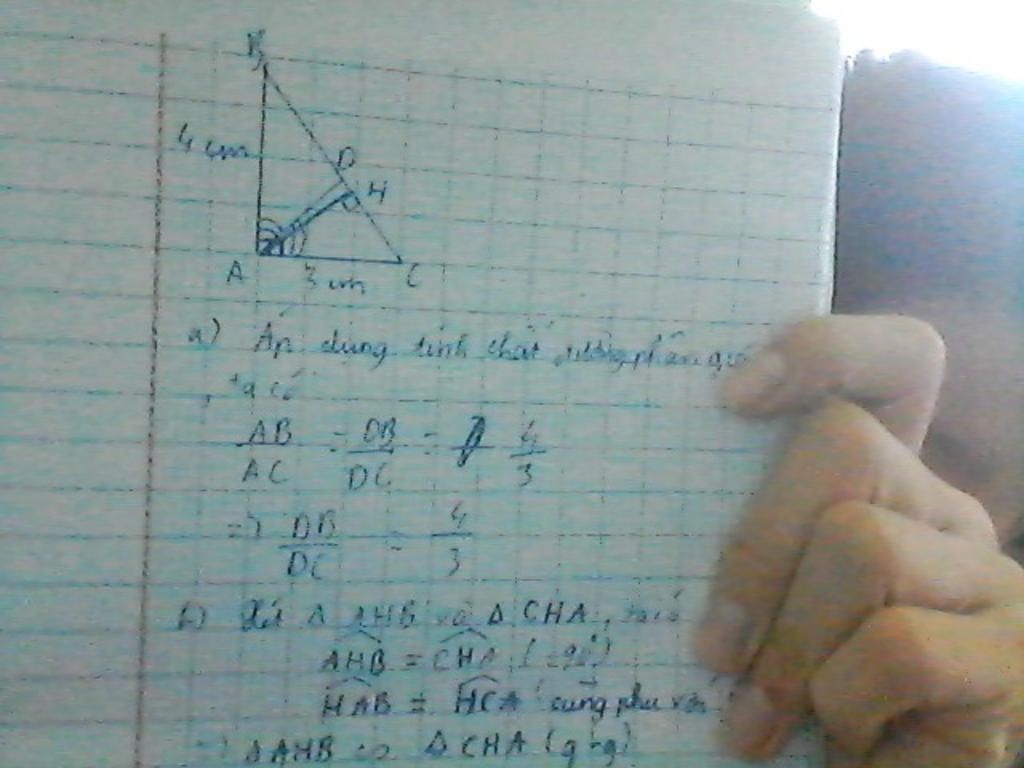 B
4 cm
D
H
A
3 cm
C
a) Áp dụng tính chất đường phân giác
ta có
AB/AC = DB/DC = 4/3
=> DB/DC = 4/3
b) Xét Δ AHB và Δ CHA, ta có
AHB = CHA (=90°)
HAB = HCA cùng phụ với
=> Δ AHB ∽ Δ CHA (g-g)